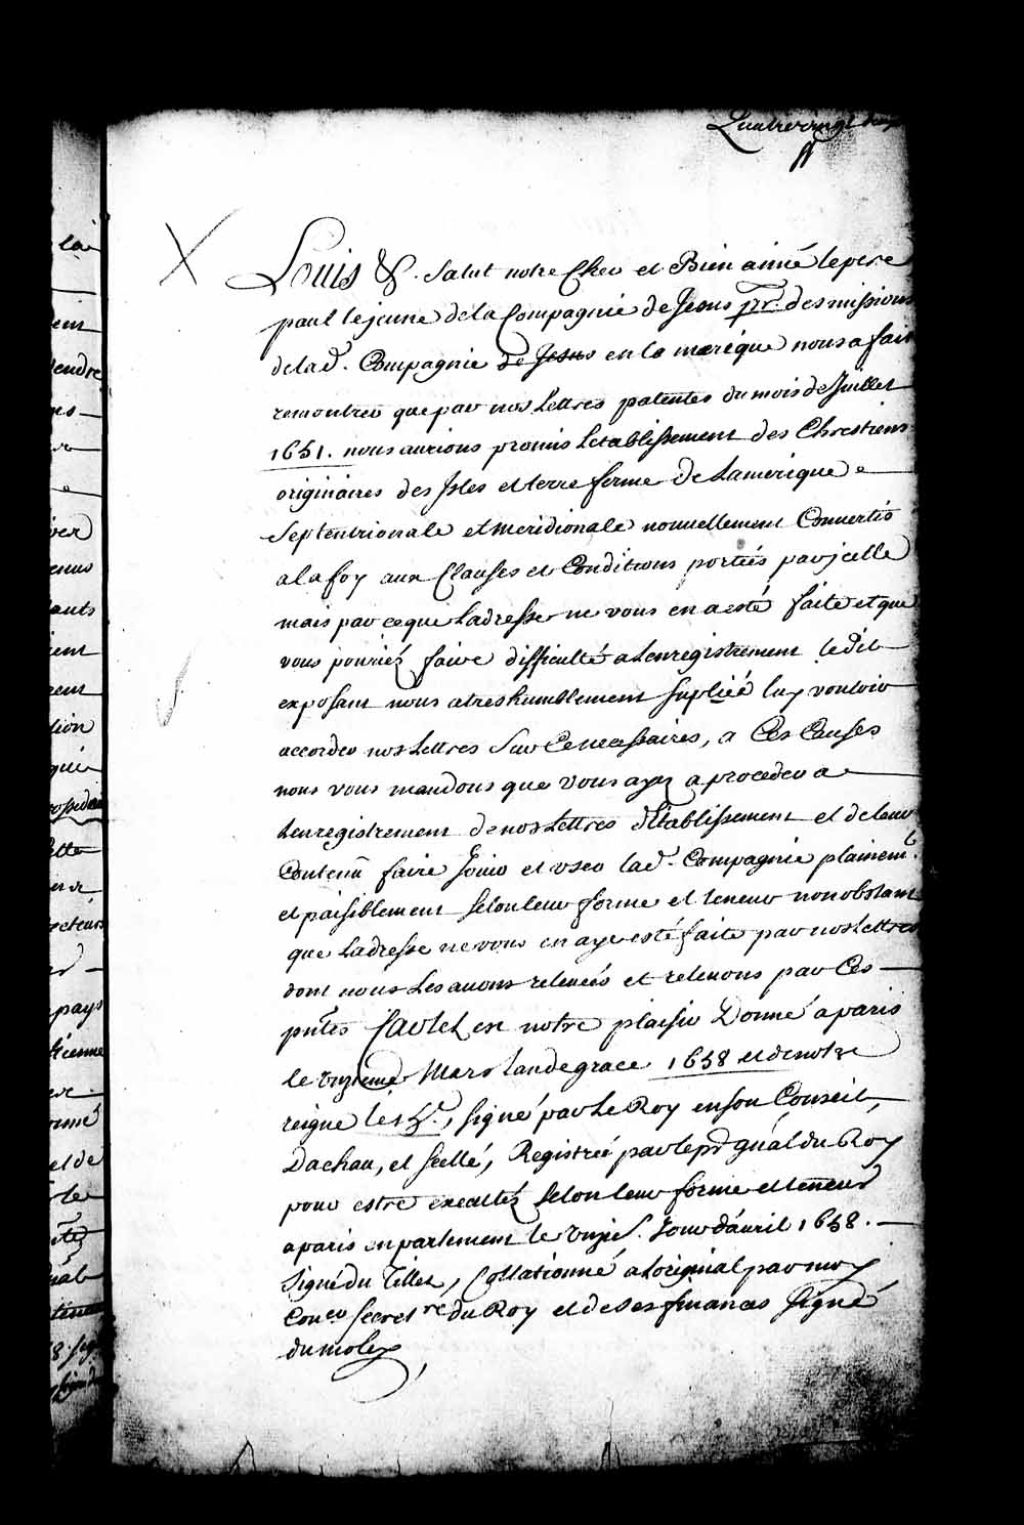 Quatrevingt
Louis &. Salut notre Cher et Bien aimé le pere
paul le jeune de la Compagnie de Jesus pr. des missions
de lad. Compagnie de Jesus en la merique nous a fait
remontrer que par nos Lettres patentes du mois de Juillet
1651. nous aurions promis Letablissement des Chrestiens
originaires des Isles et terre ferme de Lamerique
Septentrionale et meridionale nouvellement Convertis
a la foy aux Clauses et Conditions portées par jcelle
mais par ce que Ladresse ne vous en a esté faite et que
vous pouriéz faire difficulté a Lenregistrement ledit
exposant nous a tres humblement suplié luy vouloir
accorder nos Lettres Sur Ce necessaires, a Ces Causes
nous vous mandons que vous ayez a proceder a
Lenregistrement de nos Lettres d'Etablissement et de leur
Contenu faire Jouir et user lad. Compagnie plainemt.
et paisiblement selon leur forme et teneur nonobstant
que Ladresse ne vous en aye esté faite par nos Lettres
dont nous Les avons relevées et relevons par Ces
pntes Car tel est notre plaisir Donné a paris
le unzieme Mars Lan de grace 1658 et de notre
reigne le 15e., signé par Le Roy en son Conseil,
Dachau, et scellé, Registreé par le pr gnãl du Roy
pour estre executéz selon leur forme et teneur
a paris en parlement le unzie. Jour d'avril 1658.
Signé du Tillet, Collationné a Loriginal par moy
Coner secretre du Roy et de ses finances signé
dumoley